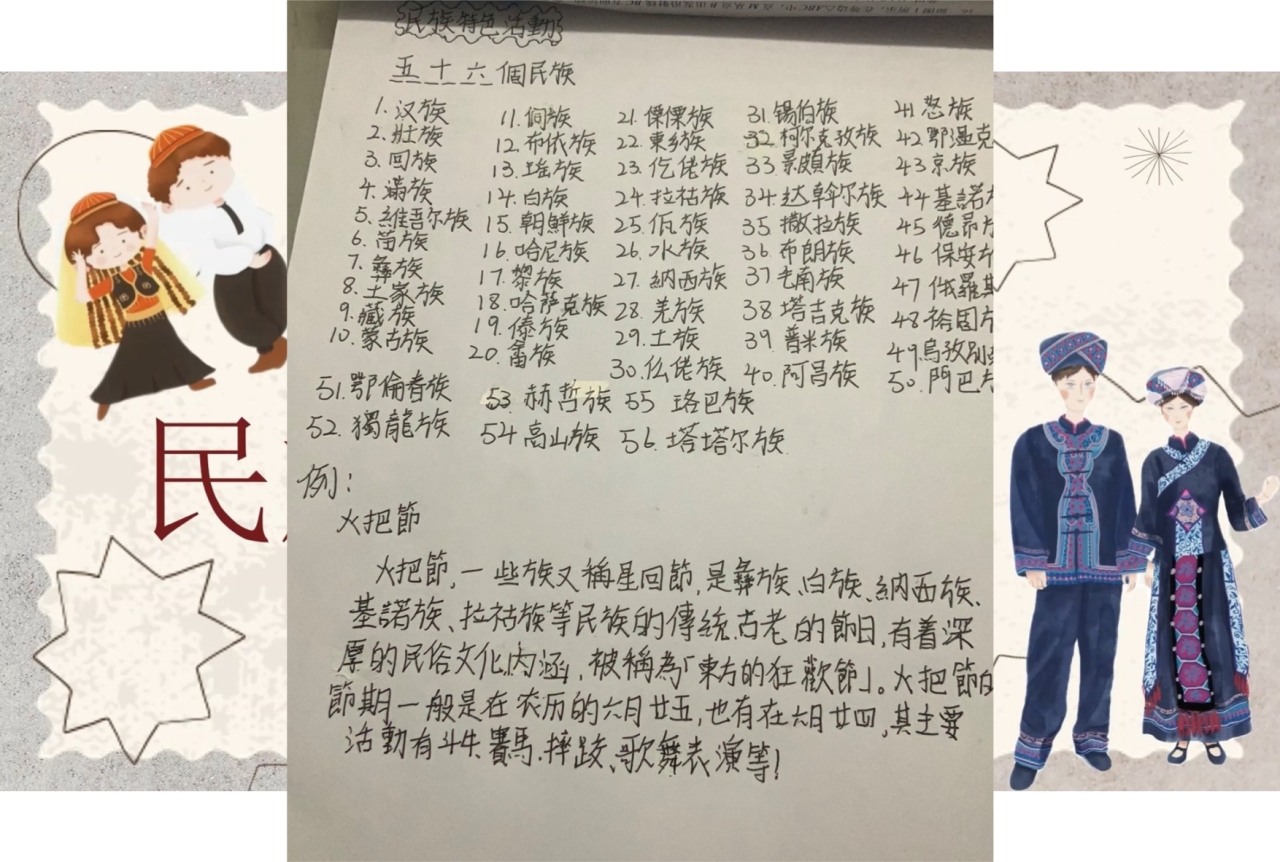 民族特色活動
五十六個民族
1. 汉族
2. 壯族
3. 回族
4. 滿族
5. 維吾尔族
6. 苗族
7. 彝族
8. 土家族
9. 藏族
10. 蒙古族
11. 侗族
12. 布依族
13. 瑤族
14. 白族
15. 朝鮮族
16. 哈尼族
17. 黎族
18. 哈萨克族
19. 傣族
20. 畲族
21. 傈僳族
22. 東乡族
23. 仡佬族
24. 拉祜族
25. 佤族
26. 水族
27. 納西族
28. 羌族
29. 土族
30. 仫佬族
31. 锡伯族
32 柯尔克孜族
33. 景頗族
34. 达斡尔族
35 撒拉族
36 布朗族
37 毛南族
38 塔吉克族
39 普米族
40. 阿昌族
41 怒族
42 鄂溫克
43 京族
44 基諾
45 德昂
46 保安
47 俄羅斯
48 裕固
49 烏孜別
50. 門巴
51. 鄂倫春族
52. 獨龍族
53 赫哲族
54 高山族
55 珞巴族
56. 塔塔尔族
例：
火把節
火把節,一些族又稱星回節,是彝族、白族、納西族、
基諾族、拉祜族等民族的傳統古老的節日,有着深
厚的民俗文化內涵，被稱為「東方的狂歡節」。火把節的
節期一般是在农历的六月廿五,也有在六月廿四,其主要
活動有斗牛、賽馬、摔跤、歌舞表演等!
民